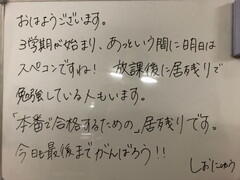 おはようございます。
3学期が始まり、あっという間に明日は
スペコンですね! 放課後に居残りで
勉強している人もいます。
「本番で合格するための」居残りです。
今日も最後までがんばろう!!
しおにゅう